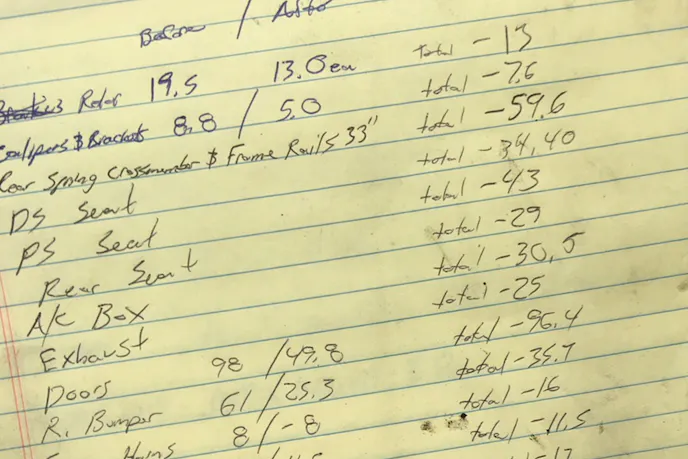 Before / After
Rotor 19.5 13.0ea total -13
Calipers & Brackets 8.8 / 5.0 total -7.6
Rear Spring crossmember & Frame Rails 33" total -59.6
DS Seat total -34.40
PS Seat total -43
Rear Seat total -29
A/C Box total -30.5
Exhaust total -25
Doors 98 / 49.8 total -96.4
R. Bumper 61 / 25.3 total -35.7
8 / -8 total -16
total -11.5